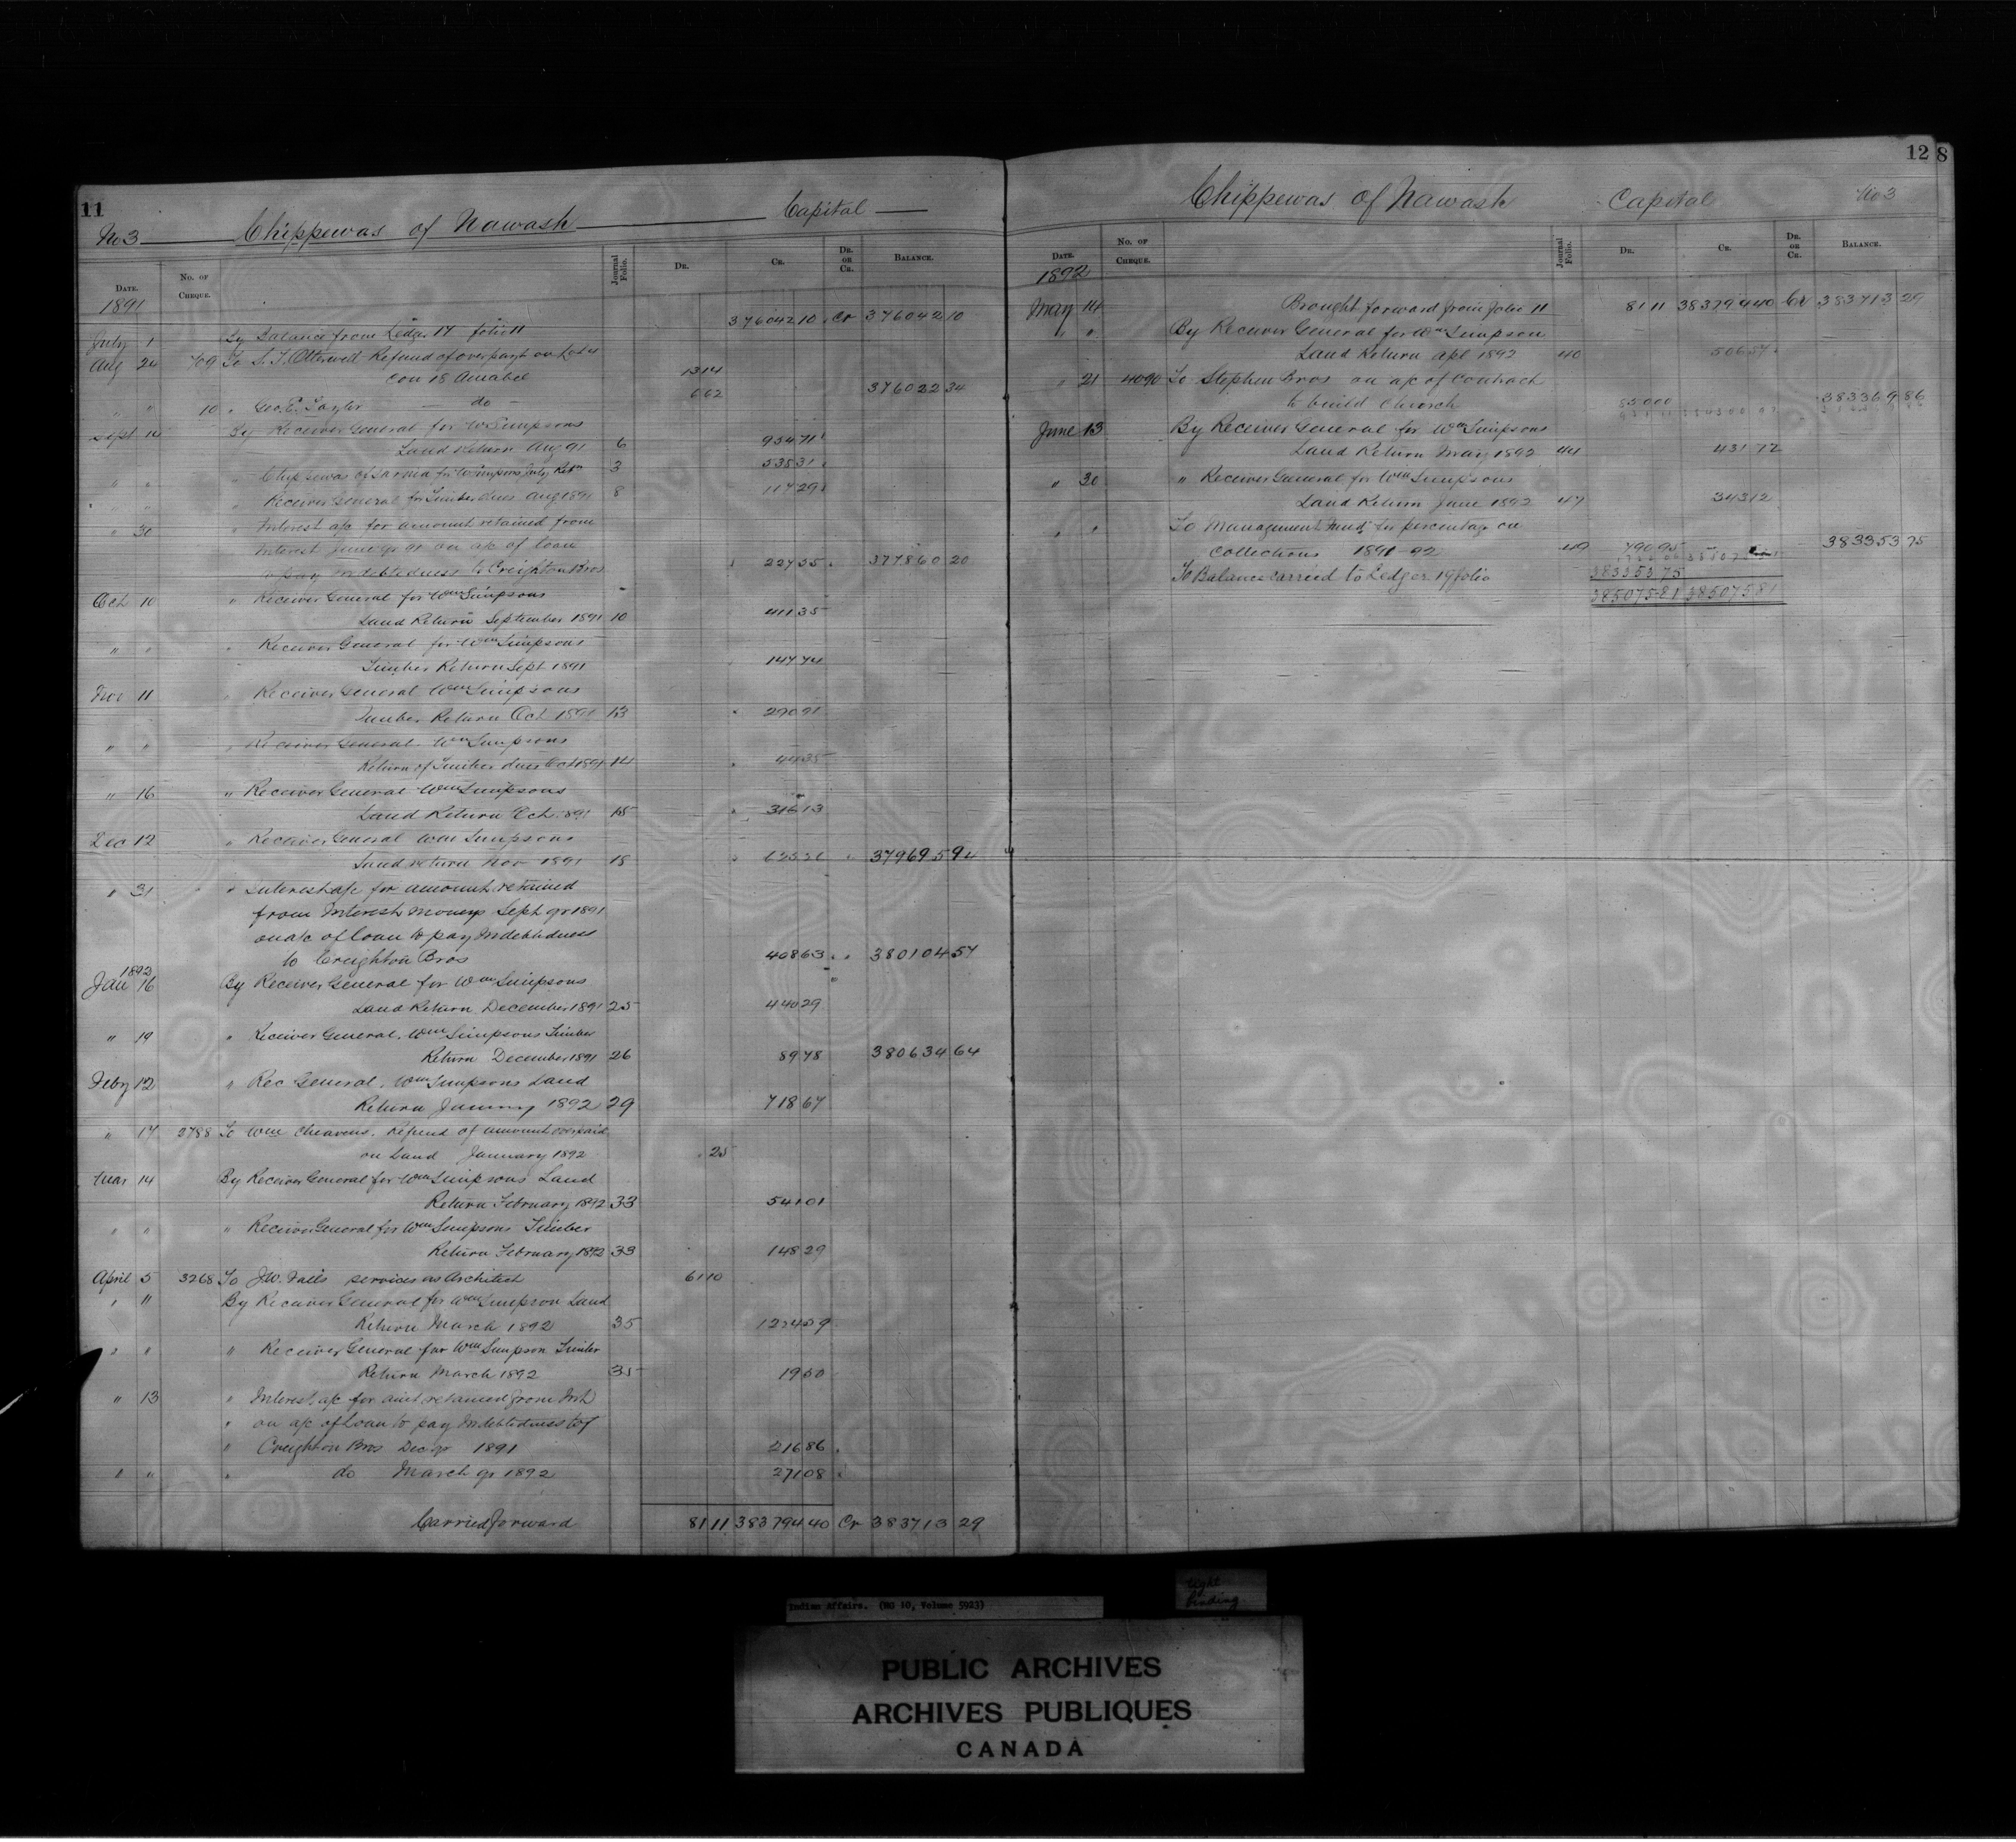 11
No 3 Chippewas of Nawash Capital
Date. No. of Cheque. Journal Folio. Dr. Cr. Dr. or Cr. Balance.
1891
July 1 By Balance from Ledger 17 folio 11 376042 10 Cr 376042 10
Aug 24 709 To S. J. Otterwell Refund of overpayt on Lot 4
Con 18 Amabel 13 14
" " 10 " Geo. E. Taylor do 6 62 376022 34
Sept 14 By Receiver General for Wm Simpsons
Land Return Aug 91 6 934 71
" " " Chippewas of Sarnia for W Simpsons July Retn 3 535 31
" " " Receiver General for Timber dues Aug 1891 8 117 29
" 30 " Interest a/c for amount retained from
Interest June qr 91 on a/c of loan
to pay indebtedness to Creighton Bros 227 55 377860 20
Oct 10 " Receiver General for Wm Simpsons
Land Return September 1891 10 411 35
" " " Receiver General for Wm Simpsons
Timber Return Sept 1891 147 74
Nov 11 " Receiver General Wm Simpsons
Timber Return Oct 1891 13 290 91
" " " Receiver General Wm Simpsons
Return of Timber dues Oct 1891 14 44 35
" 16 " Receiver General Wm Simpsons
Land Return Oct 1891 15 316 13
Dec 12 " Receiver General Wm Simpsons
Land return Nov 1891 18 379695 94
" 31 " Interest a/c for amount retained
from Interest Moneys Sept qr 1891
on a/c of loan to pay Indebtedness
to Creighton Bros 408 63 " 380104 57
1892
Jan 16 By Receiver General for Wm Simpsons
Land Return December 1891 25 440 29
" 19 " Receiver General, Wm Simpsons Timber
Return December 1891 26 89 78 380634 64
Feby 12 " Rec General, Wm Simpsons Land
Return January 1892 29 718 67
" 17 2788 To Wm Refund of amount overpaid
on Land January 1892 25
Mar 14 By Receiver General for Wm Simpsons Land
Return February 1892 33 541 01
" " " Receiver General for Wm Simpsons Timber
Return February 1892 33 148 29
April 5 3268 To J.W. services as Architect 61 10
" 11 By Receiver General for Wm Simpson Land
Return March 1892 35 1224 59
" " " Receiver General for Wm Simpson Timber
Return March 1892 35 19 50
" 13 " Interest a/c for amt retained from Int
" on a/c of Loan to pay Indebtedness to
" Creighton Bros Dec qr 1891 216 86
" " " do March qr 1892 271 08
Carried forward 81 11 383794 40 Cr 383713 29
12 8
Chippewas of Nawash Capital No 3
Date. No. of Cheque. Journal Folio. Dr. Cr. Dr. or Cr. Balance.
1892
May 14 Brought forward from folio 11 81 11 383794 40 Cr 383713 29
" " By Receiver General for Wm Simpson
Land Return Apl 1892 40 506 57
" 21 4090 To Stephen Bros on a/c of Contract
to build Church 850 00 383369 86
June 13 By Receiver General for Wm Simpsons
Land Return May 1892 44 431 72
" 30 " Receiver General for Wm Simpsons
Land Return June 1892 47 343 12
" " To Management Fund for percentage on
Collections 1891-92 49 790 95 383353 75
To Balance carried to Ledger 19 folio 383353 75
385075 81 385075 81
Indian Affairs. (RG 10, Volume 5923)
tight
binding
PUBLIC ARCHIVES
ARCHIVES PUBLIQUES
CANADA